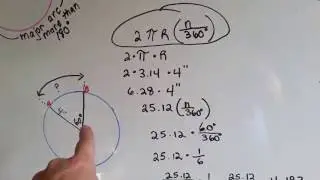 major arc
more than
180°
2 π R (n/360°)
2 · π · R
2 · 3.14 · 4"
6.28 · 4"
25.12 (n/360°)
25.12 · 60°/360°
25.12 · 1/6
25.12 1 25.12
P
4"